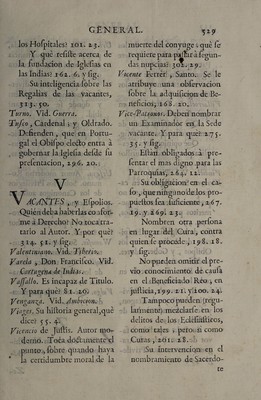 GENERAL. 529
los Hospitales? 101. 23.
Y qué resiste acerca de
la fundacion de Iglesias en
las Indias? 162. 6. y sig.
Su inteligencia sobre las
Regalias de las vacantes,
313. 50.
Turno. Vid. Guerra.
Tusco, Cardenal; y Oldrado.
Defienden, que en Portu-
gal el Obispo electo entra à
gobernar la Iglesia desde su
presentacion, 296. 20.
V
VACANTES, y Espolios.
Quién deba haberlas confor-
me à Derecho? No toca tra-
tarlo al Autor. Y por qué?
314. 51. y sig.
Valentiniano. Vid. Tiberio.
Varela, Don Francisco. Vid.
Cartagena de Indias.
Vassallo. Es incapaz de Titulo.
Y para qué? 81. 20.
Venganza. Vid. Ambicion.
Viages. Su historia general, qué
dice? 55. 4.
Vicencio de Justis. Autor mo-
derno. Toca doctamente el
punto, sobre quando haya
la certidumbre moral de la
muerte del conyuge: qué se
requiere para passar à segun-
das nupcias? 302. 29.
Vicente Ferrer, Santo. Se le
atribuye una observacion
sobre la adquisicion de Be-
neficios, 268. 20.
Vice-Patronos. Deben nombrar
un Examinador en la Sede
vacante. Y para qué? 275.
35. y sig.
Están obligados à pre-
sentar el mas digno para las
Parroquias, 264. 12.
Su obligacion en el ca-
so, que ninguno de los pro-
puestos sea suficiente, 267.
19. y 269. 23.
Nombren otra persona
en lugar del Cura, contra
quien se procede, 198. 18.
y sig.
No pueden omitir el pre-
vio conocimiento de causa
en el Beneficiado Reo, en
justicia, 199. 21. y 200. 24.
Tampoco pueden (regu-
larmente) mezclarse en los
delitos de los Eclesiasticos,
como tales; pero sí como
Curas, 201. 28.
Su intervencion en el
nombramiento de Sacerdo-
te